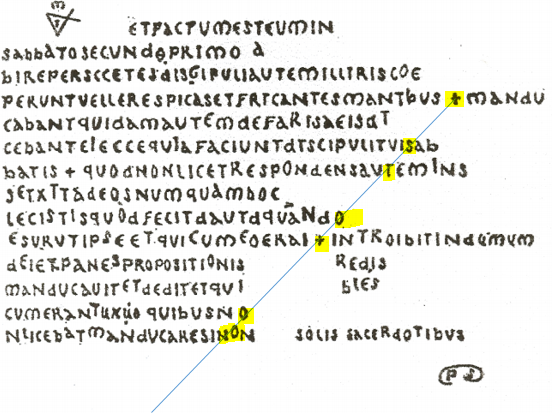 ETFACTUMESTEUMIN
SABBATOSECUNDOPRIMO A
BIREPERSCCETESDISGIPULIAUTEMILLITRISCOE
PERUNTVELLERESPICASETFRTCANTESMANTBUS + MANDU
CABANTQUIDAMAUTEMDEFARISAEISDT
CEBANTELECCEQUIAFACIUNTDTSCIPULITVISAB
BATIS + QUODNONLICETRESPONDENSAUTEMINS
SETXTTADEOSNUMQUAMBOC
LECISTISQUODFECITDAUTDQUANDO
ESURUTIPSEETQUICUMEOERAI + INTROIBITINDUMUM
DEIETPANESPROPOSITIONIS REDIS
MANDUCAUITETDEDITETQUI BLES
CUMERANTUXUO QUIBUSNO
NLICEBATMANDUCARESINON SOLIS SACERDOTIBUS
PS